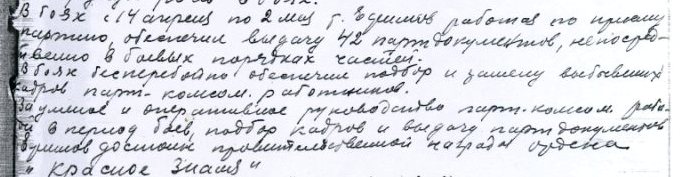 В боях с 14 апреля по 2 мая т. Едишов работая по приему
партию, обеспечил выдачу 42 партдокументов, непосред-
ственно в боевых порядках частей.
В боях бесперебойно обеспечил подбор и замену выбывших
кадров парт-комсом. работников.
За умелое и оперативное руководство парт.-комсом рабо-
той в период боев, подбор кадров и выдачу партдокументов
Едишов достоин правительственной награды ордена
„Красное Знамя"